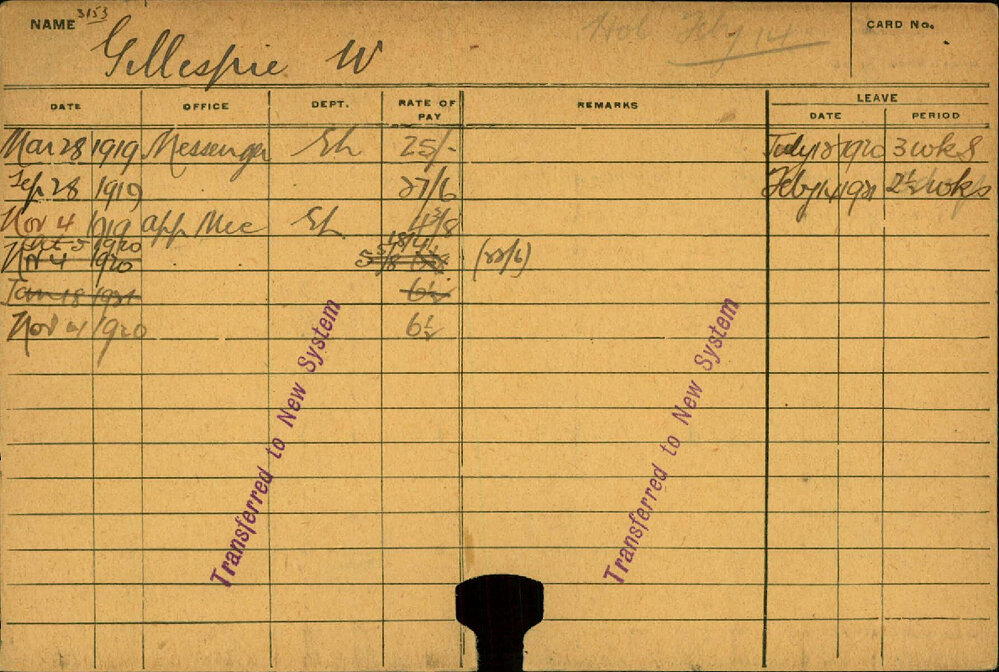 3153
NAME Gillespie W Hob Feby 14 CARD No.
DATE OFFICE DEPT. RATE OF PAY REMARKS LEAVE
DATE PERIOD
Mar 28 1919 Messenger 25/- July 1920 3 wks
Sep 28 1919 27/6 Feby 14 1921 2½ wks
Nov 4 1919 App Mec 4/8
Oct 5 1920
Nov 4 1920 (22/6)
Jan 18 1921 6½
Nov 4 1920 6½
Transferred to New System
Transferred to New System